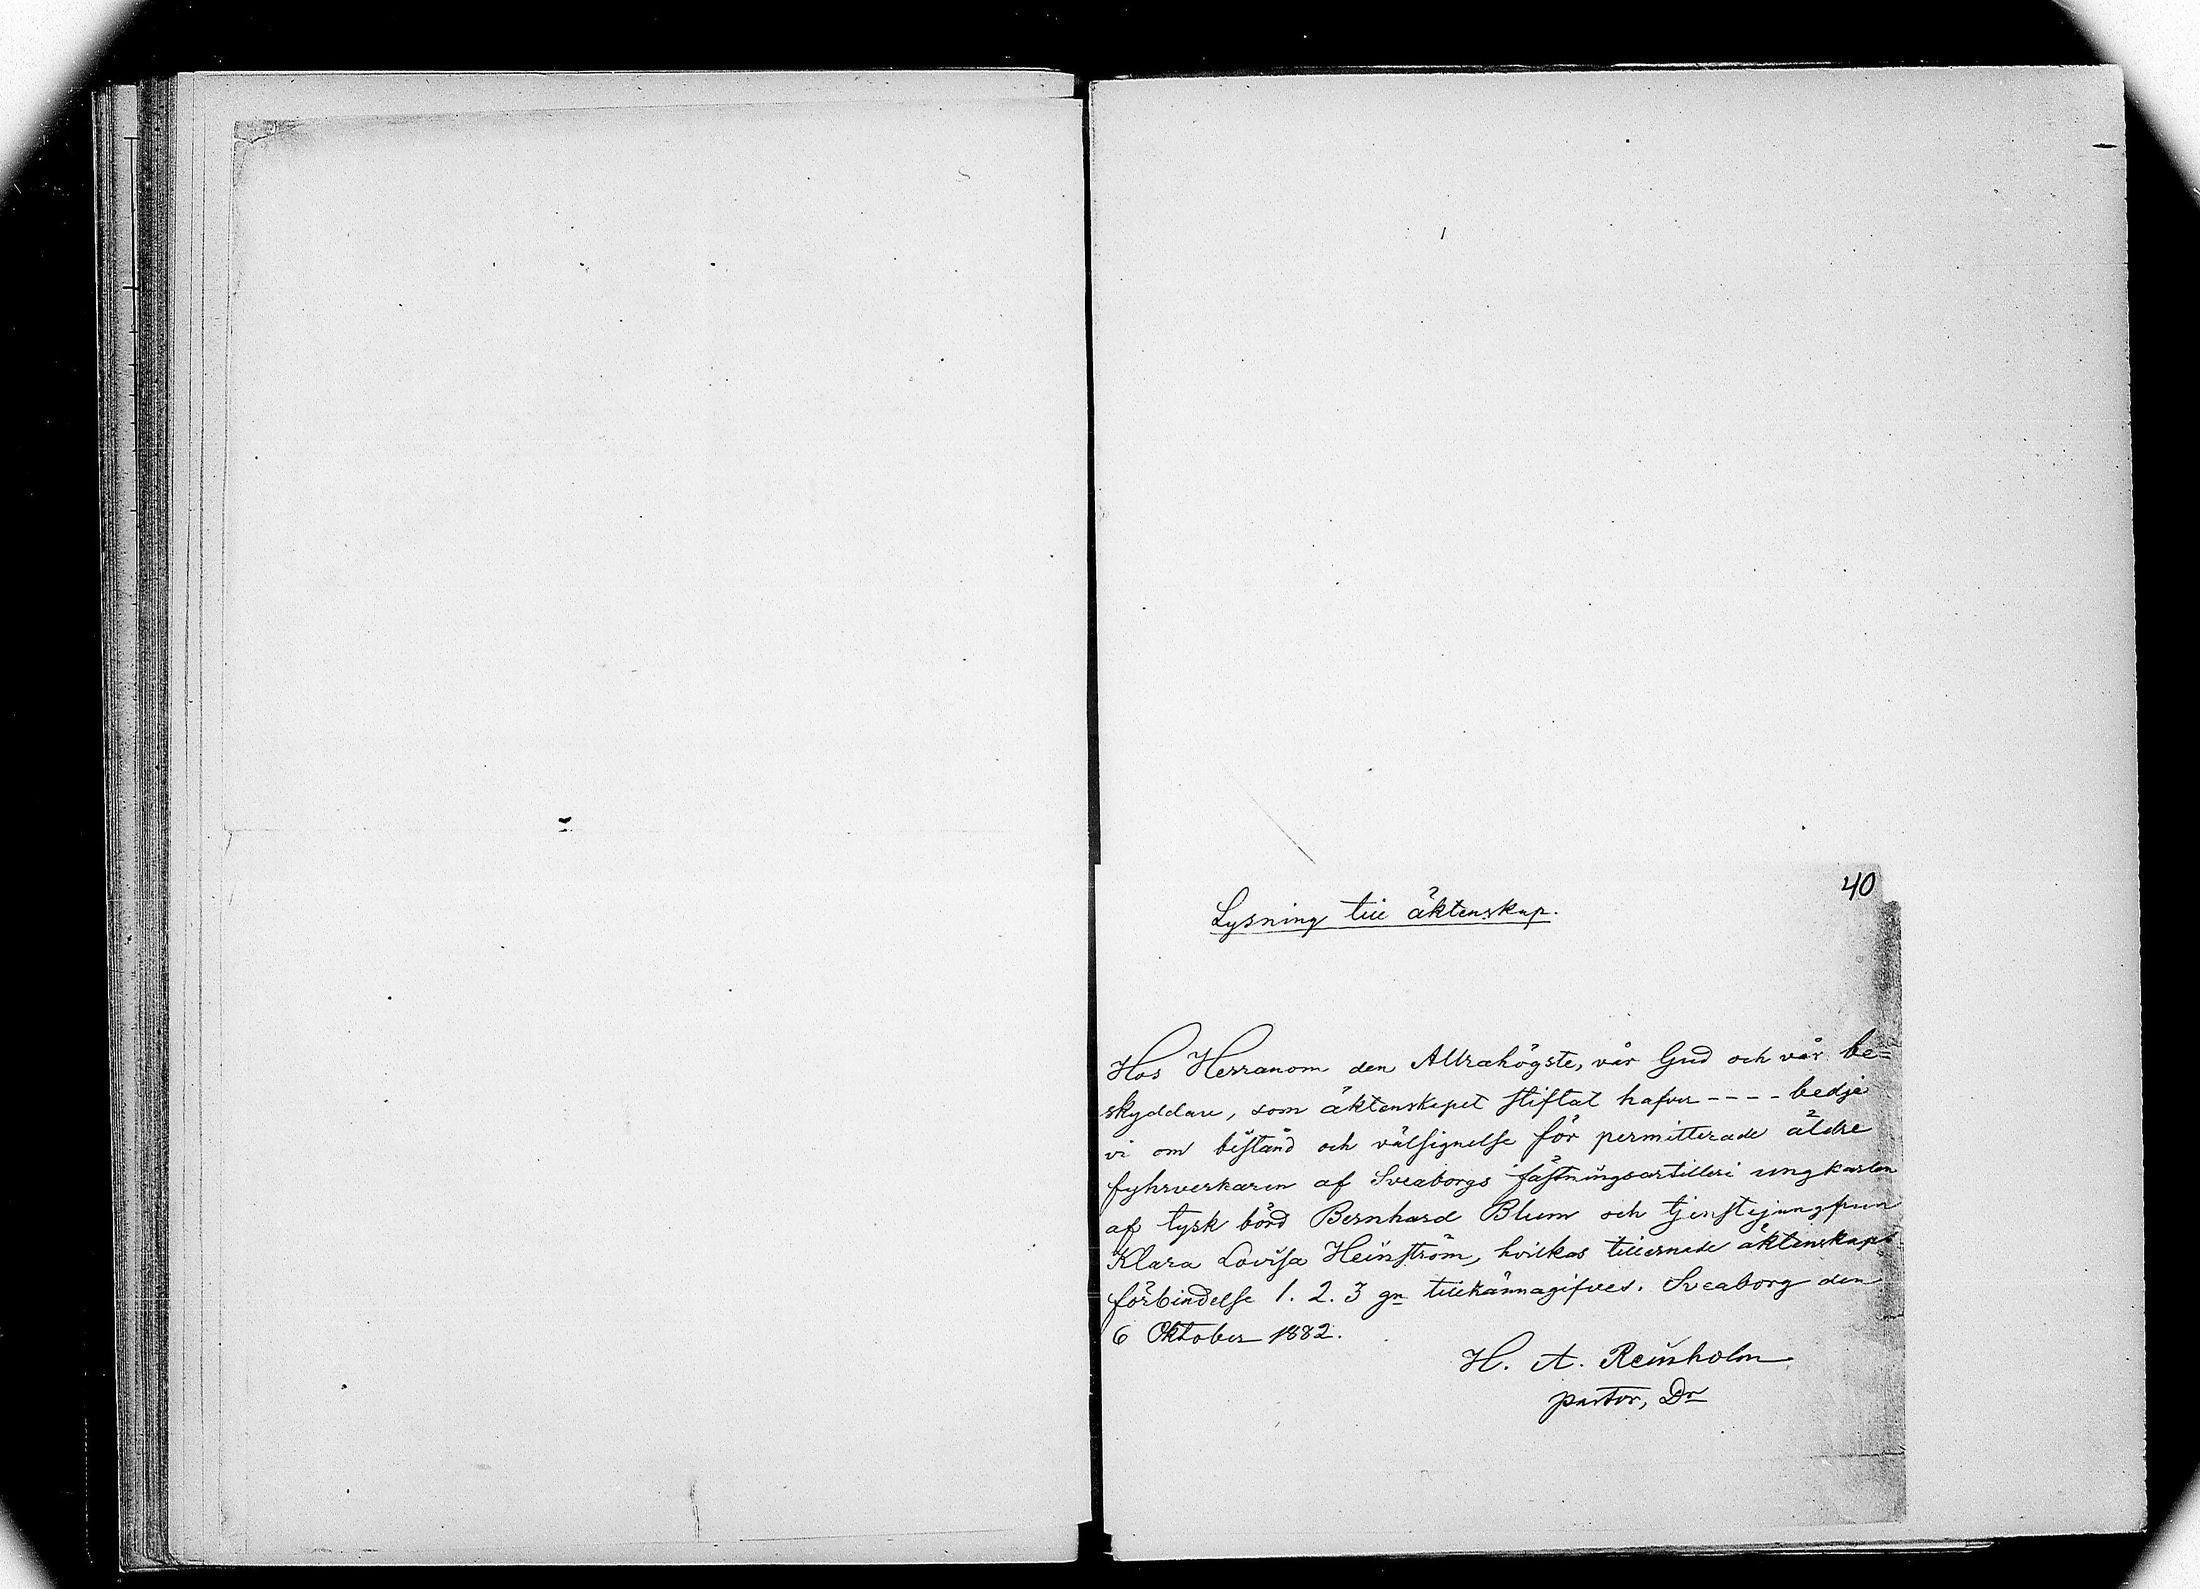 40
Lysning till äktenskap.
Hos Herranom den Allrahögste, vår Gud och vår be=
skyddare, som äktenskapet stiftat hafver ---- bedje
vi om bistånd och välsignelse för permitterade äldre
fyhrverkaren af Sveaborgs fästningsartilleri ungkarlen
af tysk börd Bernhard Blum och tjenstejungfrun
Klara Lovisa Heinström, hvilkas tillernade äktenskaps
förbindelse 1. 2. 3 gn tillkännagifves. Sveaborg den
6 Oktober 1882.
H. A. Reinholm
pastor, Dr